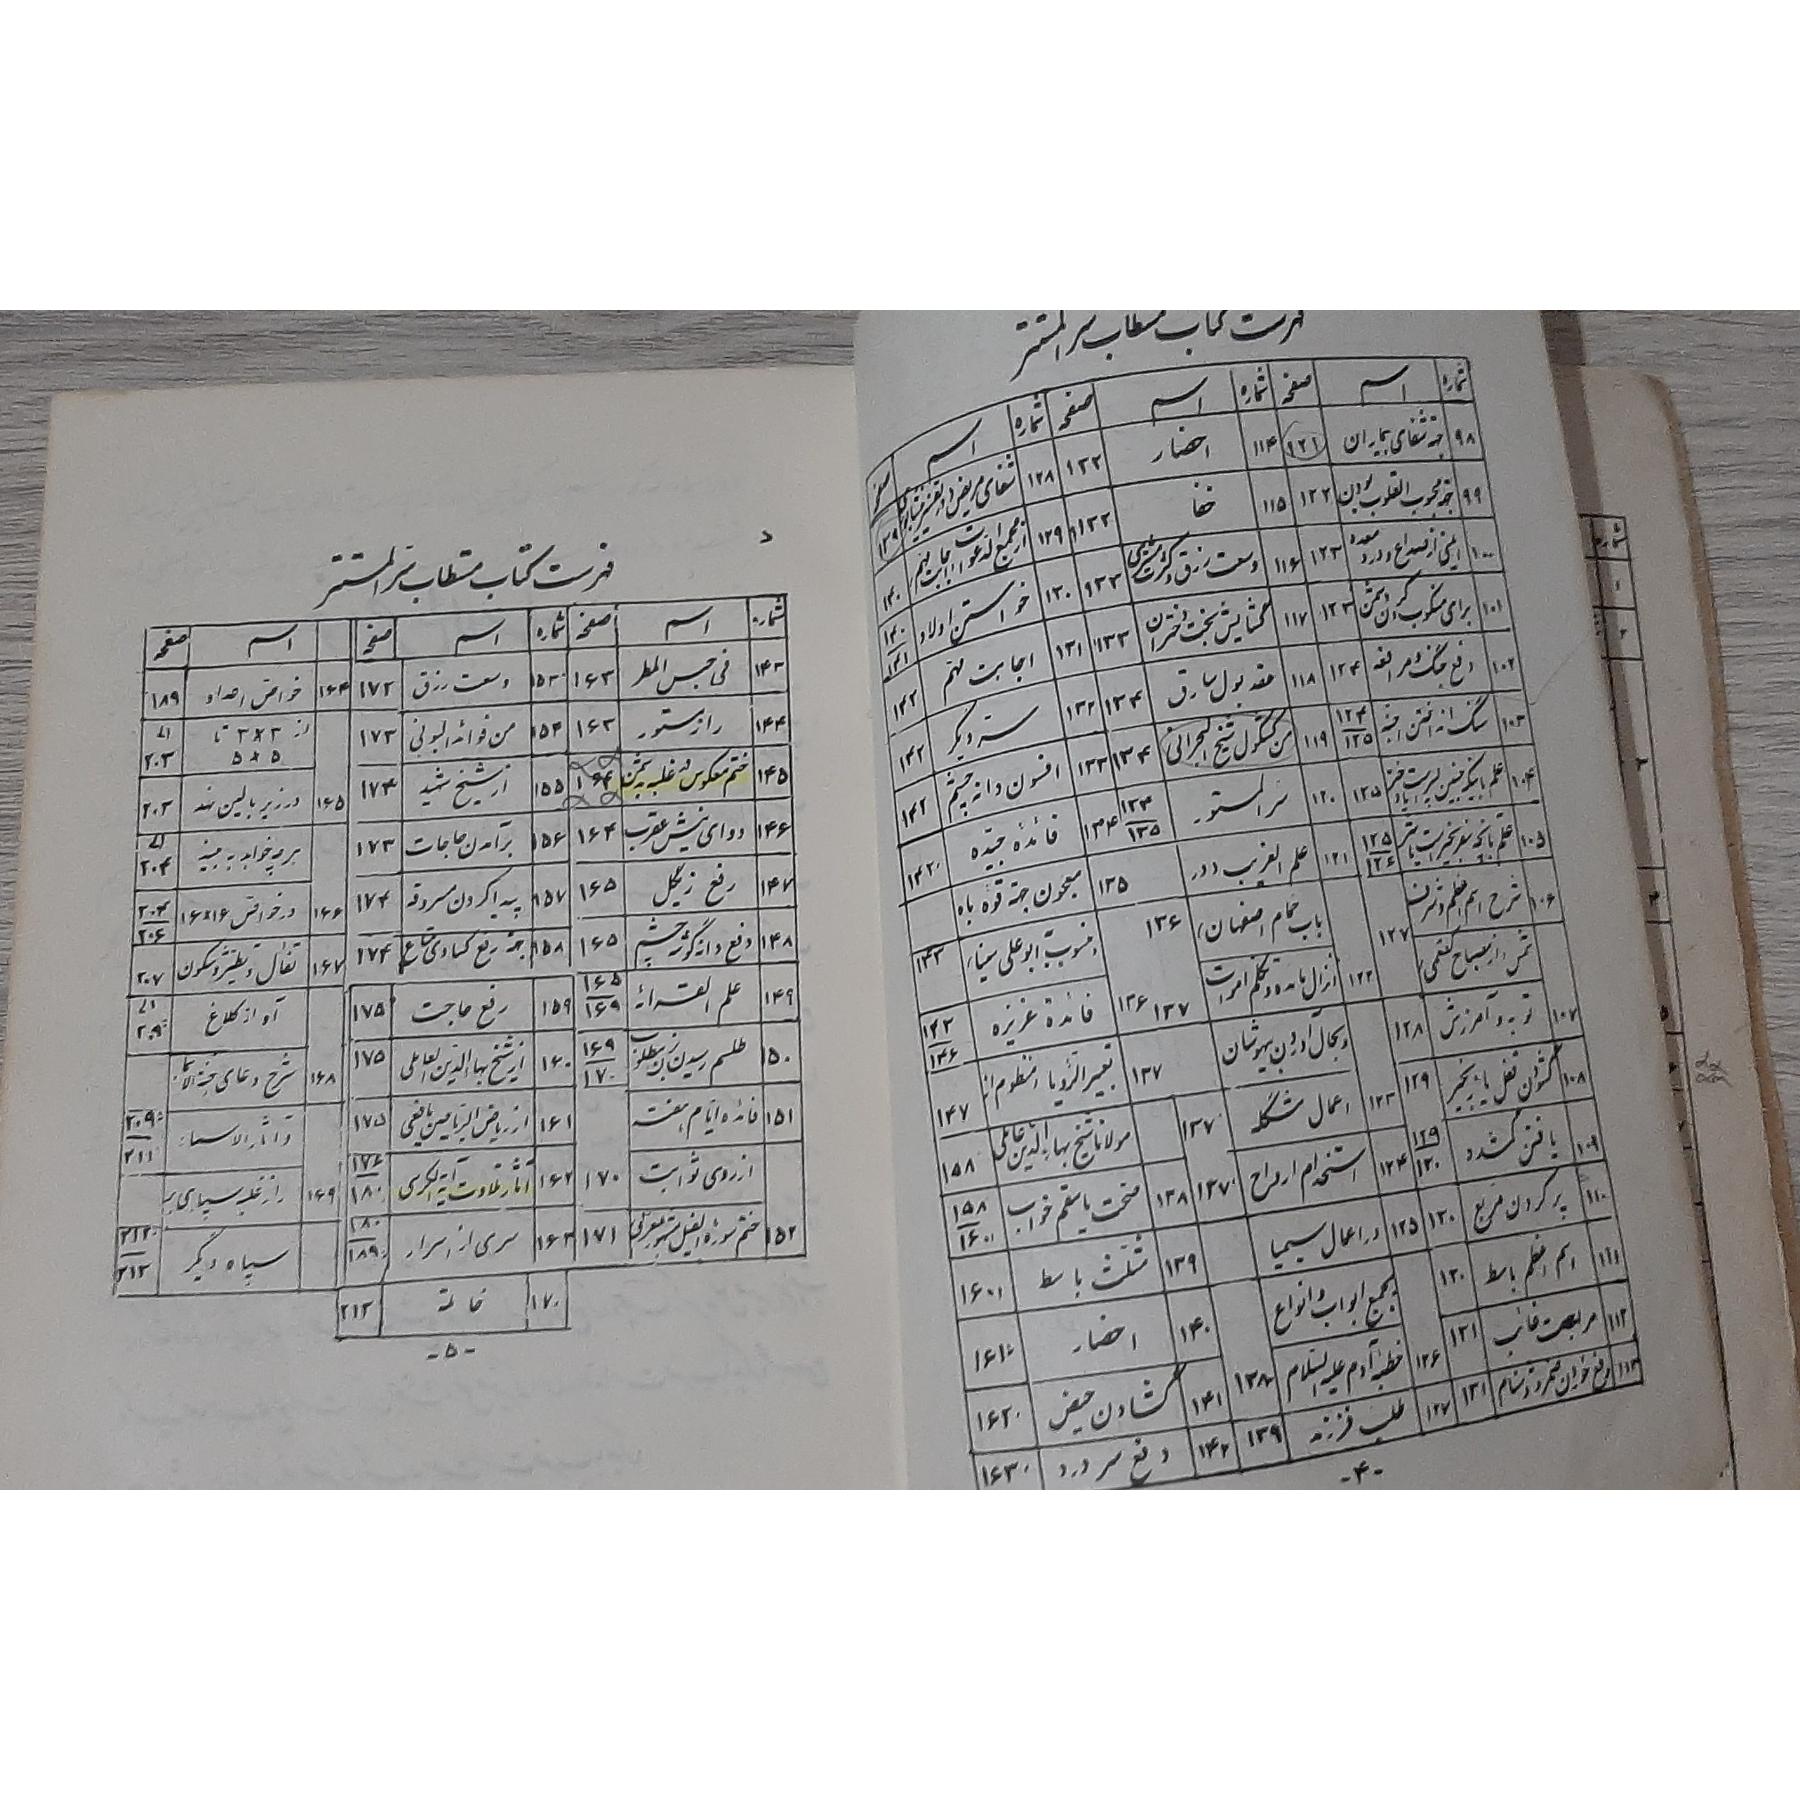 فهرست کتاب مستطاب سر المستتر
شماره اسم صفحه شماره اسم صفحه شماره اسم صفحه
۹۸ جهة شفای بیماران ۱۲۱ ۱۱۴ احضار ۱۳۲ ۱۲۸ شفای مریض و ۱۳۹
۹۹ جهة محبوب القلوب بودن ۱۲۲ ۱۱۵ خفا ۱۳۲ ۱۲۹ از مجمع الدعوات ۱۴۰
۱۰۰ ایمنی از صداع و درد معده ۱۲۳ ۱۱۶ وسعت رزق و ۱۳۳ ۱۳۰ خواستن اولاد ۱۴۰ ۱۴۱
۱۰۱ برای منکوب کردن دشمن ۱۲۳ ۱۱۷ گشایش بخت دختران ۱۳۳ ۱۳۱ اجابت مهم ۱۴۲
۱۰۲ دفع جنگ و مرافعه ۱۲۴ ۱۱۸ عقد بول سارق ۱۳۴ ۱۳۲ ستر دیگر ۱۴۲
۱۰۳ ۱۲۴ ۱۲۵ ۱۱۹ من کشکول شیخ البحرانی ۱۳۴ ۱۳۳ افسون دانه چشم ۱۴۲
۱۰۴ ۱۲۵ ۱۲۰ سر المستور ۱۳۴ ۱۳۵ ۱۳۴ فائدة جیّدة ۱۴۲
۱۰۵ ۱۲۵ ۱۲۶ ۱۲۱ علم الغریب در ۱۳۵ معجون جهة قوّه باه
۱۰۶ شرح اسم اعظم و ۱۲۷ باب حمام اصفهان ۱۳۶ منسوب بابوعلی سینا ۱۴۳
از مصباح کفعمی ۱۲۲ انزال مائده و تکلم اموات ۱۳۷ ۱۳۶ فائدة عزیزه ۱۴۳ ۱۴۶
۱۰۷ توبه و آمرزش ۱۲۸ و بحال آوردن بیهوشان ۱۳۷ تعبیر الرّؤیا منظوم از ۱۴۷
۱۰۸ گشودن قفل یا زنجیر ۱۲۹ ۱۲۳ اعمال مشکله ۱۳۷ مولانا شیخ بهاء الدّین عاملی ۱۵۸
۱۰۹ یافتن گمشده ۱۲۹ ۱۳۰ ۱۲۴ استخدام ارواح ۱۳۷ ۱۳۸ صحت یا سقم خواب ۱۵۸ ۱۶۰
۱۱۰ پر کردن مربع ۱۳۰ ۱۲۵ در اعمال سیمیا ۱۳۹ مثلّث باسط ۱۶۰
۱۱۱ اسم اعظم باسط ۱۳۰ بجمیع ابواب و انواع ۱۴۰ احضار ۱۶۱
۱۱۲ مربعجهت غائب ۱۳۱ ۱۲۶ خطبه آدم علیه السّلام ۱۳۸ ۱۴۱ گشادن حیض ۱۶۲
۱۱۳ ۱۳۱ ۱۲۷ طلب فرزند ۱۳۹ ۱۴۲ دفع سردرد ۱۶۳
-۴-
د
فهرست کتاب مستطاب سر المستتر
شماره اسم صفحه شماره اسم صفحه اسم صفحه
۱۴۳ فی حبس المطر ۱۶۳ ۱۵۳ وسعت رزق ۱۷۲ ۱۶۴ خواص اعداد ۱۸۹
۱۴۴ راز مستور ۱۶۳ ۱۵۴ من فوائد البونی ۱۷۳ از ۳×۳ تا ۵×۵ الی ۲۰۳
۱۴۵ ختم معکوس در غلبه بدشمن ۱۶۴ ۱۵۵ از شیخ شهید ۱۷۳ ۱۶۵ در زیر بالین نهد ۲۰۳
۱۴۶ دوای نیش عقرب ۱۶۴ ۱۵۶ برآمدن حاجات ۱۷۳ هر چه خواهد به بیند الی ۲۰۴
۱۴۷ رفع زگیل ۱۶۵ ۱۵۷ پیدا کردن مسروقه ۱۷۴ ۱۶۶ در خواص ۱۶×۱۶ ۲۰۴ ۲۰۶
۱۴۸ دفع دانه گوشه چشم ۱۶۵ ۱۵۸ جهة رفع کسادی متاع ۱۷۴ ۱۶۷ تفأل و تطیّر و شگون ۲۰۷
۱۴۹ علم القرائة ۱۶۵ ۱۶۹ ۱۵۹ رفع حاجت ۱۷۵ آواز کلاغ الی ۲۰۹
۱۵۰ طلسم رسیدن زن بمطلوب ۱۶۹ ۱۷۰ ۱۶۰ از شیخ بهاء الدّین العاملی ۱۷۵ ۱۶۸ شرح دعای
۱۵۱ فائده ایّام هفته ۱۶۱ از ریاض الرّیاحین یافعی ۱۷۵ و آثار الاسماء ۲۰۹ ۲۱۱
از روی ثوابت ۱۷۰ ۱۶۲ آثار تلاوت آیة الکرسی ۱۷۶ ۱۸۰ ۱۶۹ راز غلبه سپاهی به
۱۵۲ ختم سوره الفیل مشهور مغربی ۱۷۱ ۱۶۳ سری از اسرار ۱۸۰ ۱۸۹ سپاه دیگر ۲۱۲ ۲۱۳
۱۷۰ خاتمة ۲۱۳
-۵-